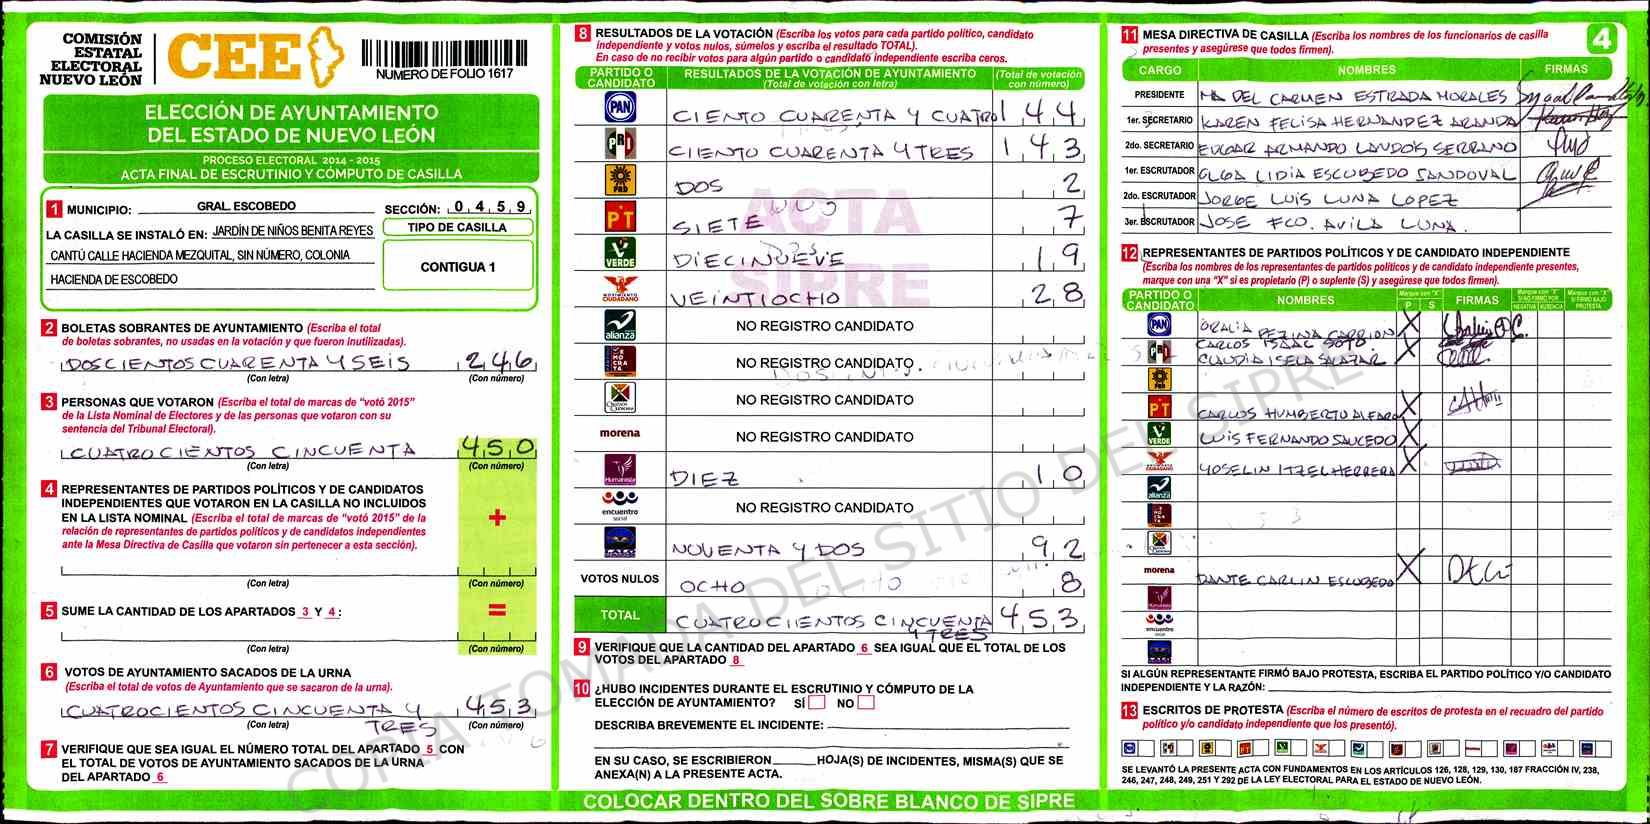 COMISIÓN
ESTATAL
ELECTORAL
NUEVO LEÓN
CEE
NUMERO DE FOLIO 1617
ELECCIÓN DE AYUNTAMIENTO
DEL ESTADO DE NUEVO LEÓN
PROCESO ELECTORAL 2014 - 2015
ACTA FINAL DE ESCRUTINIO Y CÓMPUTO DE CASILLA
1 MUNICIPIO: GRAL. ESCOBEDO SECCIÓN: 0 4 5 9
LA CASILLA SE INSTALÓ EN: JARDÍN DE NIÑOS BENITA REYES
CANTÚ CALLE HACIENDA MEZQUITAL, SIN NÚMERO, COLONIA
HACIENDA DE ESCOBEDO
TIPO DE CASILLA
CONTIGUA 1
2 BOLETAS SOBRANTES DE AYUNTAMIENTO (Escriba el total
de boletas sobrantes, no usadas en la votación y que fueron inutilizadas).
DOSCIENTOS CUARENTA Y SEIS 246
(Con letra) (Con número)
3 PERSONAS QUE VOTARON (Escriba el total de marcas de "votó 2015"
de la Lista Nominal de Electores y de las personas que votaron con su
sentencia del Tribunal Electoral).
CUATROCIENTOS CINCUENTA 450
(Con letra) (Con número)
4 REPRESENTANTES DE PARTIDOS POLÍTICOS Y DE CANDIDATOS
INDEPENDIENTES QUE VOTARON EN LA CASILLA NO INCLUIDOS
EN LA LISTA NOMINAL (Escriba el total de marcas de "votó 2015" de la
relación de representantes de partidos políticos y de candidatos independientes
ante la Mesa Directiva de Casilla que votaron sin pertenecer a esta sección).
+
(Con letra) (Con número)
5 SUME LA CANTIDAD DE LOS APARTADOS 3 Y 4:
=
(Con letra) (Con número)
6 VOTOS DE AYUNTAMIENTO SACADOS DE LA URNA
(Escriba el total de votos de Ayuntamiento que se sacaron de la urna).
CUATROCIENTOS CINCUENTA Y
TRES 453
(Con letra) (Con número)
7 VERIFIQUE QUE SEA IGUAL EL NÚMERO TOTAL DEL APARTADO 5 CON
EL TOTAL DE VOTOS DE AYUNTAMIENTO SACADOS DE LA URNA
DEL APARTADO 6
8 RESULTADOS DE LA VOTACIÓN (Escriba los votos para cada partido político, candidato
independiente y votos nulos, súmelos y escriba el resultado TOTAL).
En caso de no recibir votos para algún partido o candidato independiente escriba ceros.
PARTIDO O CANDIDATO
RESULTADOS DE LA VOTACIÓN DE AYUNTAMIENTO
(Total de votación con letra)
(Total de votación con número)
PAN CIENTO CUARENTA Y CUATRO 144
PRI CIENTO CUARENTA Y TRES 143
PRD DOS 2
PT SIETE 7
VERDE DIECINUEVE 19
MOVIMIENTO CIUDADANO VEINTIOCHO 28
alianza NO REGISTRO CANDIDATO
DEMOCRATA NO REGISTRO CANDIDATO
NO REGISTRO CANDIDATO
morena NO REGISTRO CANDIDATO
Humanista DIEZ 10
encuentro social NO REGISTRO CANDIDATO
NOVENTA Y DOS 92
VOTOS NULOS OCHO 8
TOTAL CUATROCIENTOS CINCUENTA
Y TRES 453
ACTA
SIPRE
9 VERIFIQUE QUE LA CANTIDAD DEL APARTADO 6 SEA IGUAL QUE EL TOTAL DE LOS
VOTOS DEL APARTADO 8
10 ¿HUBO INCIDENTES DURANTE EL ESCRUTINIO Y CÓMPUTO DE LA
ELECCIÓN DE AYUNTAMIENTO? SÍ NO
DESCRIBA BREVEMENTE EL INCIDENTE:
EN SU CASO, SE ESCRIBIERON HOJA(S) DE INCIDENTES, MISMA(S) QUE SE
ANEXA(N) A LA PRESENTE ACTA.
COLOCAR DENTRO DEL SOBRE BLANCO DE SIPRE
COPIA TOMADA DEL SITIO DEL SIPRE
11 MESA DIRECTIVA DE CASILLA (Escriba los nombres de los funcionarios de casilla
presentes y asegúrese que todos firmen).
4
CARGO NOMBRES FIRMAS
PRESIDENTE MA DEL CARMEN ESTRADA MORALES
1er. SECRETARIO KAREN FELISA HERNANDEZ ARANDA
2do. SECRETARIO EDGAR ARMANDO LANDOS SERRANO
1er. ESCRUTADOR OLGA LIDIA ESCOBEDO SANDOVAL
2do. ESCRUTADOR JORGE LUIS LUNA LOPEZ
3er. ESCRUTADOR JOSE FCO. AVILA LUNA.
12 REPRESENTANTES DE PARTIDOS POLÍTICOS Y DE CANDIDATO INDEPENDIENTE
(Escriba los nombres de los representantes de partidos políticos y de candidato independiente presentes,
marque con una "X" si es propietario (P) o suplente (S) y asegúrese que todos firmen).
PARTIDO O CANDIDATO NOMBRES Marque con "X" P S FIRMAS
PAN ORALIA PEZINA CARRION X
PRI CARLOS ISAAC SOTO
CLAUDIA ISELA SALAZAR X
PRD
PT CARLOS HUMBERTO ALFARO X
VERDE LUIS FERNANDO SAUCEDO X
CIUDADANO YOSELIN ITZEL HERRERA X
alianza
morena DANTE CARLIN ESCOBEDO X
Humanista
encuentro social
SI ALGÚN REPRESENTANTE FIRMÓ BAJO PROTESTA, ESCRIBA EL PARTIDO POLÍTICO Y/O CANDIDATO
INDEPENDIENTE Y LA RAZÓN:
13 ESCRITOS DE PROTESTA (Escriba el número de escritos de protesta en el recuadro del partido
político y/o candidato independiente que los presentó).
SE LEVANTÓ LA PRESENTE ACTA CON FUNDAMENTOS EN LOS ARTÍCULOS 126, 128, 129, 130, 187 FRACCIÓN IV, 238,
246, 247, 248, 249, 251 Y 292 DE LA LEY ELECTORAL PARA EL ESTADO DE NUEVO LEÓN.